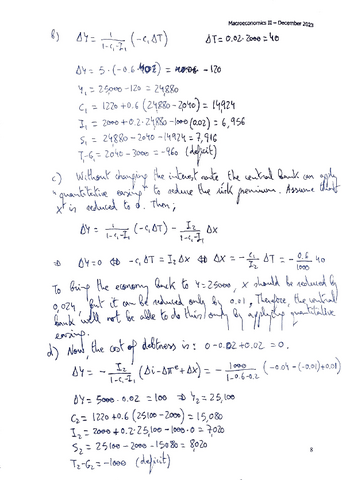 Macroeconomics II – December 2023
b) ΔY = 1/(1-c₁-I₁) (-c₁ΔT) ΔT = 0.02·2000 = 40
ΔY = 5·(-0.6·40) = -120
Y₁ = 25000 - 120 = 24,880
C₁ = 1220 + 0.6 (24,880 - 2040) = 14,924
I₁ = 2000 + 0.2·24,880 - 1000 (0.02) = 6,956
S₁ = 24,880 - 2040 - 14924 = 7,916
T₁-G₁ = 2040 - 3000 = -960 (deficit)
c) Without changing the interest rate the central bank can apply
"quantitative easing" to reduce the risk premium. Assume that
x is reduced to 0. Then,
ΔY = 1/(1-c₁-I₁) (-c₁ΔT) - I₂/(1-c₁-I₁) Δx
⇒ ΔY=0 ⇔ -c₁ΔT = I₂Δx ⇔ Δx = -c₁/I₂ ΔT = -0.6/1000 40
To bring the economy back to Y=25000, x should be reduced by
0,024, but it can be reduced only by 0.01, Therefore, the central
bank will not be able to do this only by applying quantitative
easing.
d) Now, the cost of debtness is: 0 - 0.02 + 0.02 = 0.
ΔY = - I₂/(1-c₁-I₁) (Δi - Δπᵉ + Δx) = - 1000/(1-0.6-0.2) (-0.04 - (-0.01) + 0.01)
ΔY = 5000·0.02 = 100 ⇒ Y₂ = 25,100
C₂ = 1220 + 0.6 (25100 - 2000) = 15,080
I₂ = 2000 + 0.2·25,100 - 1000·0 = 7,020
S₂ = 25100 - 2000 - 15080 = 8020
T₂-G₂ = -1000 (deficit)
8